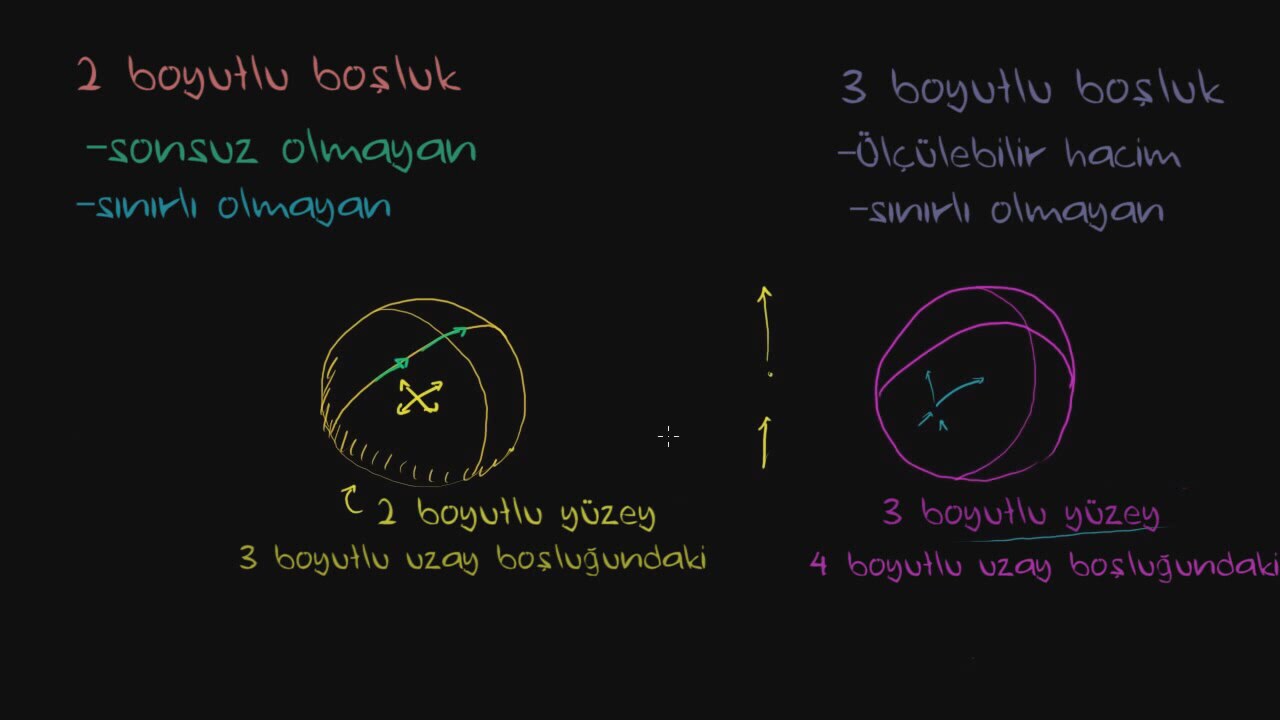 2 boyutlu boşluk
-sonsuz olmayan
-sınırlı olmayan
2 boyutlu yüzey
3 boyutlu uzay boşluğundaki
3 boyutlu boşluk
-Ölçülebilir hacim
-sınırlı olmayan
3 boyutlu yüzey
4 boyutlu uzay boşluğundaki